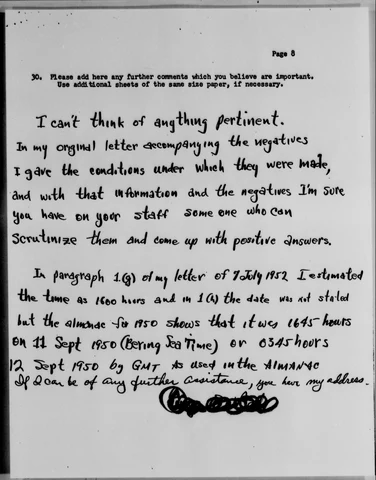 Page 8
30. Please add here any further comments which you believe are important.
Use additional sheets of the same size paper, if necessary.
I can't think of angthing pertinent.
In my orginal letter accompanying the negatives
I gave the conditions under which they were made,
and with that information and the negatives I'm sure
you have on your staff some one who can
scrutinize them and come up with positive answers.
In paragraph 1.(g) of my letter of 7 July 1952 I estimated
the time as 1600 hours and in 1.(h) the date was not stated
but the almanac for 1950 shows that it was 1645 hours
on 11 Sept 1950 (Bering Sea Time) or 0345 hours
12 Sept 1950 by GMT as used in the ALMANAC
If I can be of any further assistance, you have my address.